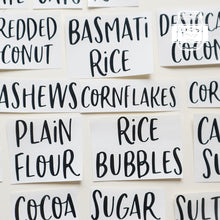 REDDED
CONUT
BASMATI
RICE
DESICCA
COCO
ASHEWS
CORNFLAKES
COR
PLAIN
FLOUR
RICE
BUBBLES
CA
SU
COCOA
SUGAR
SULT